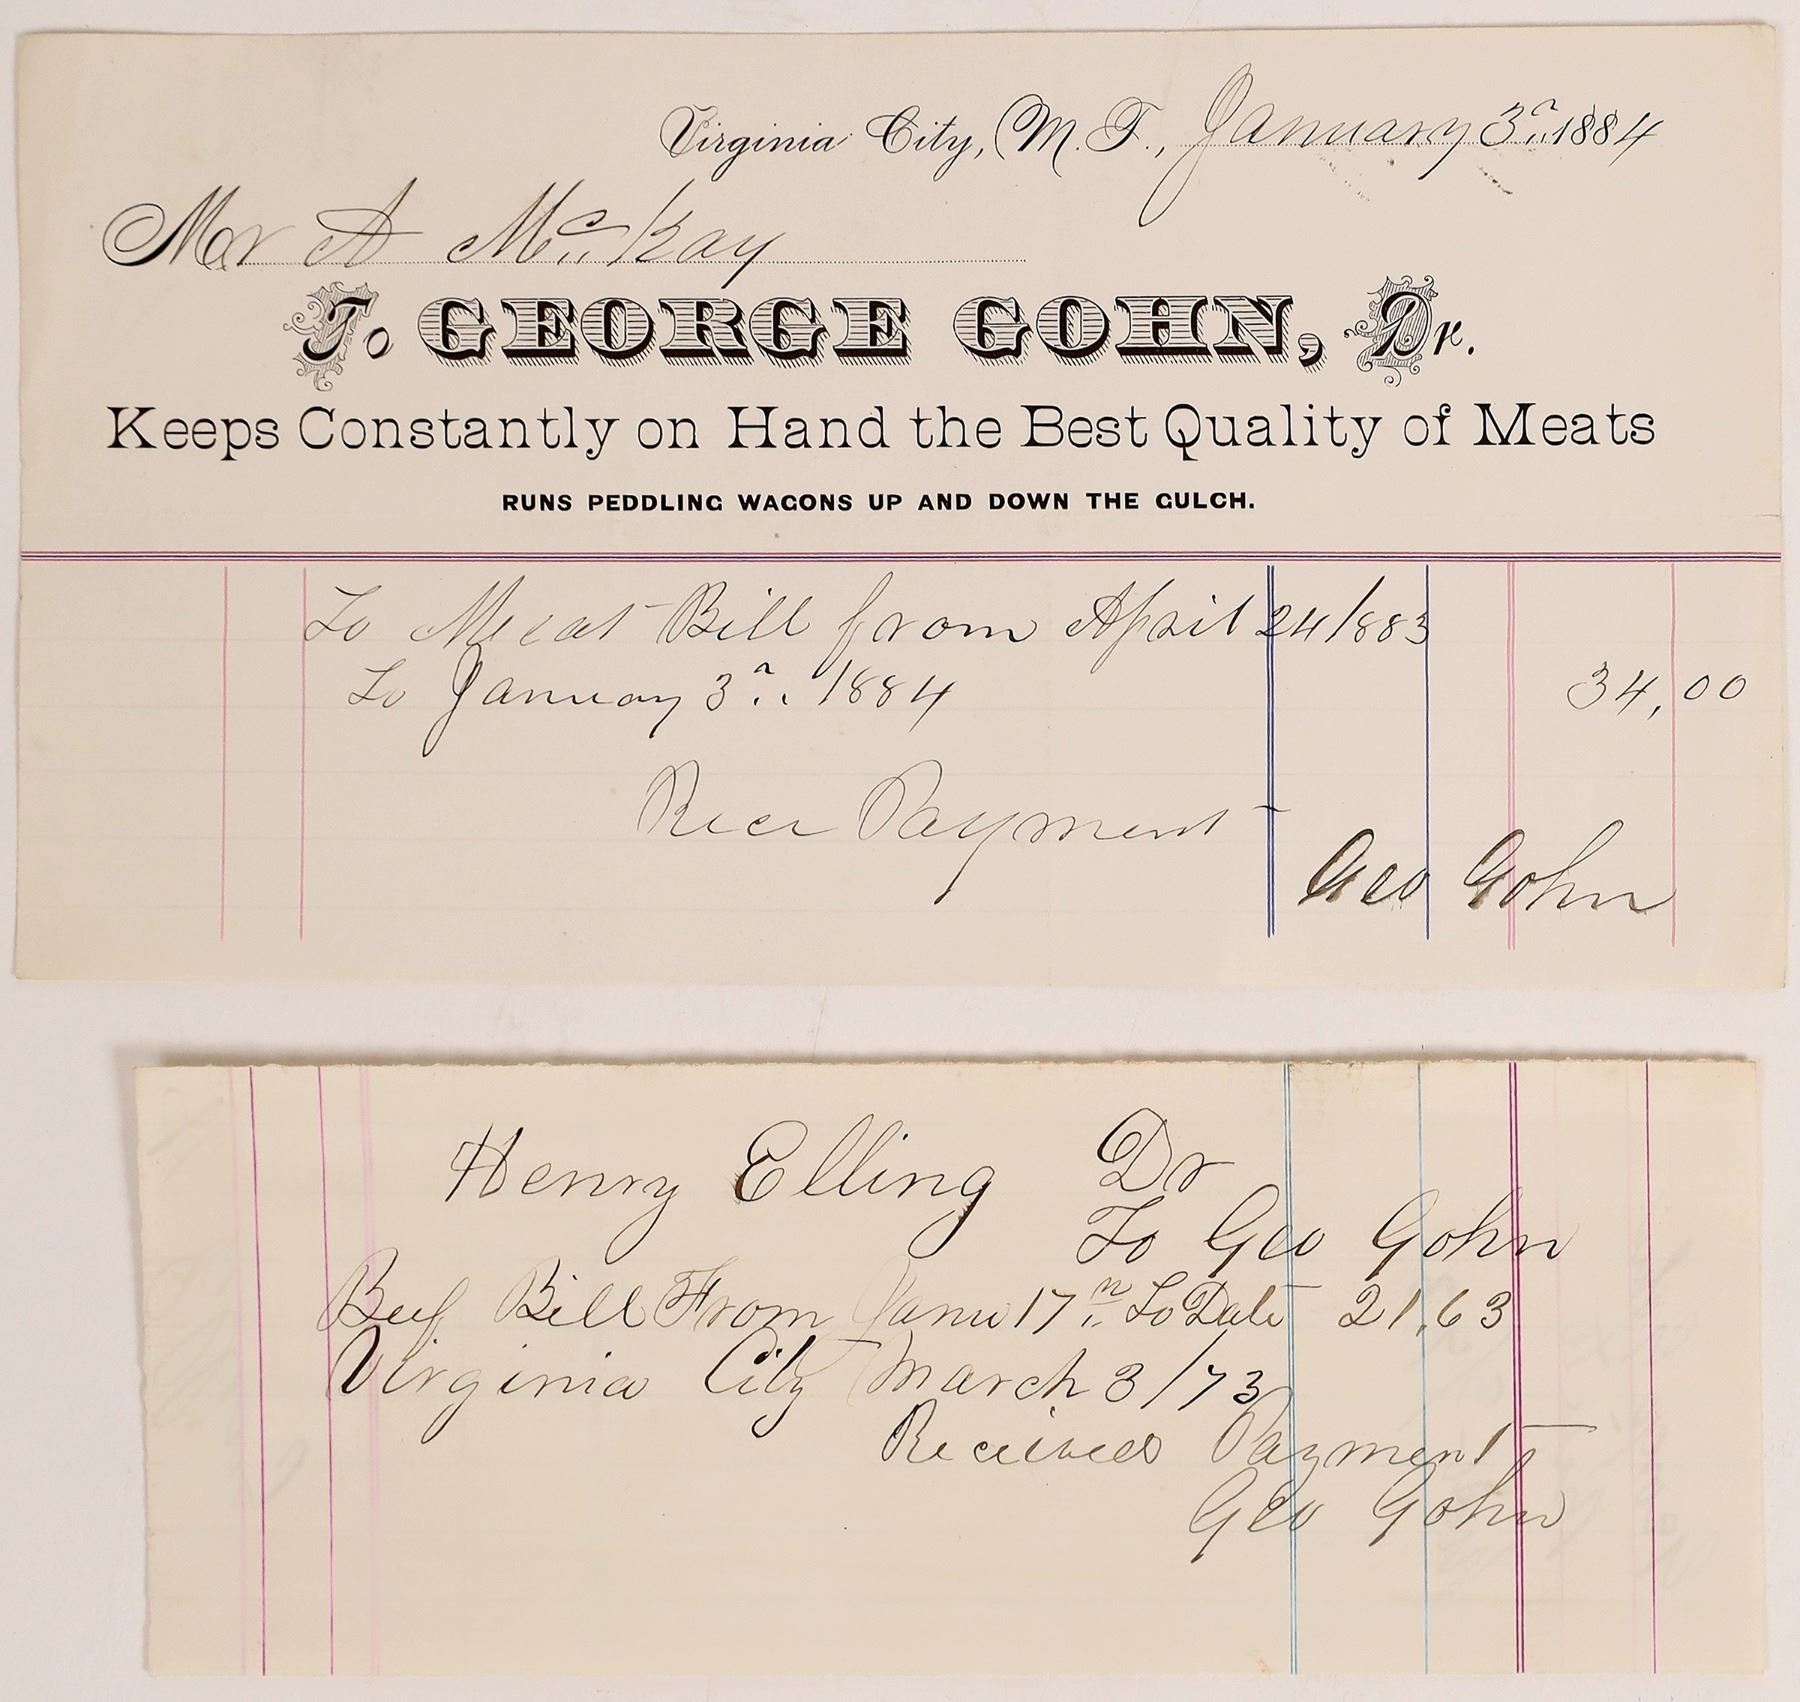 Virginia City, M. T., January 3d 1884
Mr A McKay
To GEORGE GOHN, Dr.
Keeps Constantly on Hand the Best Quality of Meats
RUNS PEDDLING WAGONS UP AND DOWN THE GULCH.
To Meat Bill from April 24/1883
To January 3d 1884 34,00
Recd Payment
Geo Gohn
Henry Elling Dr
To Geo Gohn
Beef Bill From 17th To Date 21,63
Virginia City March 3/73
Received Payment
Geo Gohn